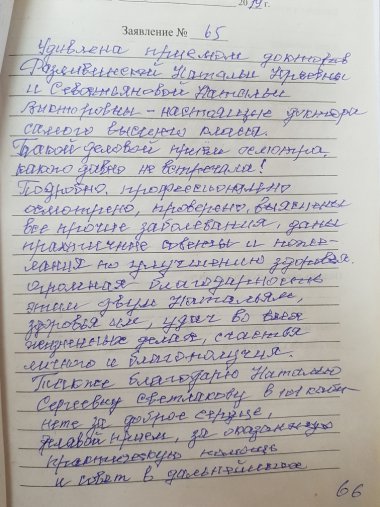 2019г.
Заявление № 65
Удивлена приемом докторов
Наталии Юрьевны
и Севостьяновой Наталии
Викторовны – настоящие доктора
самого высшего класса.
Такой деловой приём осмотра,
какого давно не встречала!
Подробно, профессионально
осмотрено, проверено, выяснены
все прочие заболевания, даны
практичные советы и поже-
лания по улучшению здоровья.
огромная благодарность
этим двум Натальям,
здоровья им, удач во всех
жизненных делах, счастья
личного и благополучия.
Также благодарю Наталью
Сергеевну Светлакову в 101 каби-
нете за доброе сердце,
прием, за оказанную
практическую помощь
и совет в дальнейшем
66